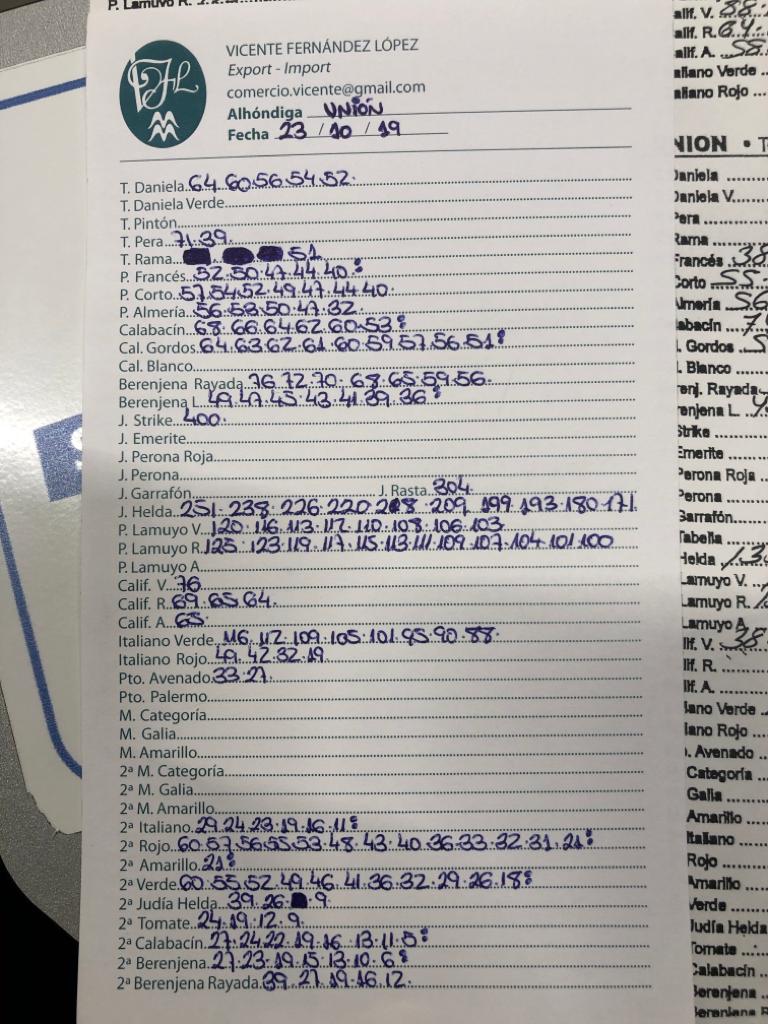 P. Lamuyo R.
VICENTE FERNÁNDEZ LÓPEZ
Export - Import
comercio.vicente@gmail.com
Alhóndiga UNIÓN
Fecha 23 / 10 / 19
T. Daniela 64.60.56.54.52.
T. Daniela Verde
T. Pintón
T. Pera 71.39.
T. Rama 51
P. Francés 52.50.47.44.40.
P. Corto 57.54.52.49.47.44.40.
P. Almería 56.53.50.47.32.
Calabacín 68.66.64.62.60.53
Cal. Gordos 64.63.62.61.60.59.57.56.51
Cal. Blanco
Berenjena Rayada 76.72.70.68.65.59.56.
Berenjena L. 49.47.45.43.41.39.36
J. Strike 400.
J. Emerite
J. Perona Roja
J. Perona
J. Garrafón J. Rasta 304
J. Helda 251.238.226.220.218.209.199.193.180.171.
P. Lamuyo V. 120.116.113.112.110.108.106.103
P. Lamuyo R. 125.123.119.117.115.113.111.109.107.104.101.100
P. Lamuyo A
Calif. V. 76
Calif. R. 69.65.64.
Calif. A. 65.
Italiano Verde 116.112.109.105.101.95.90.88.
Italiano Rojo 49.42.32.19
Pto. Avenado 33.27.
Pto. Palermo
M. Categoría
M. Galia
M. Amarillo
2ª M. Categoría
2ª M. Galia
2ª M. Amarillo
2ª Italiano 29.24.23.19.16.11
2ª Rojo 60.57.56.55.53.48.43.40.36.33.32.31.21
2ª Amarillo 21
2ª Verde 60.55.52.49.46.41.36.32.29.26.18
2ª Judía Helda 39.26 9.
2ª Tomate 24.19.12.9.
2ª Calabacín 27.24.22.19.16.13.11.5
2ª Berenjena 27.23.19.15.13.10.6
2ª Berenjena Rayada 39.27.19.16.12.
alif. V.
alif. R.
alif. A. 58
aliano Verde
aliano Rojo
NION • T
Daniela
Daniela V.
Pera
Rama
Francés 38
Corto 55
Almería 56
abacín
l. Gordos
l. Blanco
enj. Rayada
renjena L
Strike
Emerite
Perona Roja
Perona
Garrafón
Tabella
Helda
Lamuyo V.
Lamuyo R.
Lamuyo A
lif. V. 38
lif. R.
lif. A.
iano Verde
iano Rojo
. Avenado
Categoría
Galia
Amarillo
Italiano
Rojo
Amarillo
Verde
Judía Helda
Tomate
Calabacín
Berenjena
Berenjena R